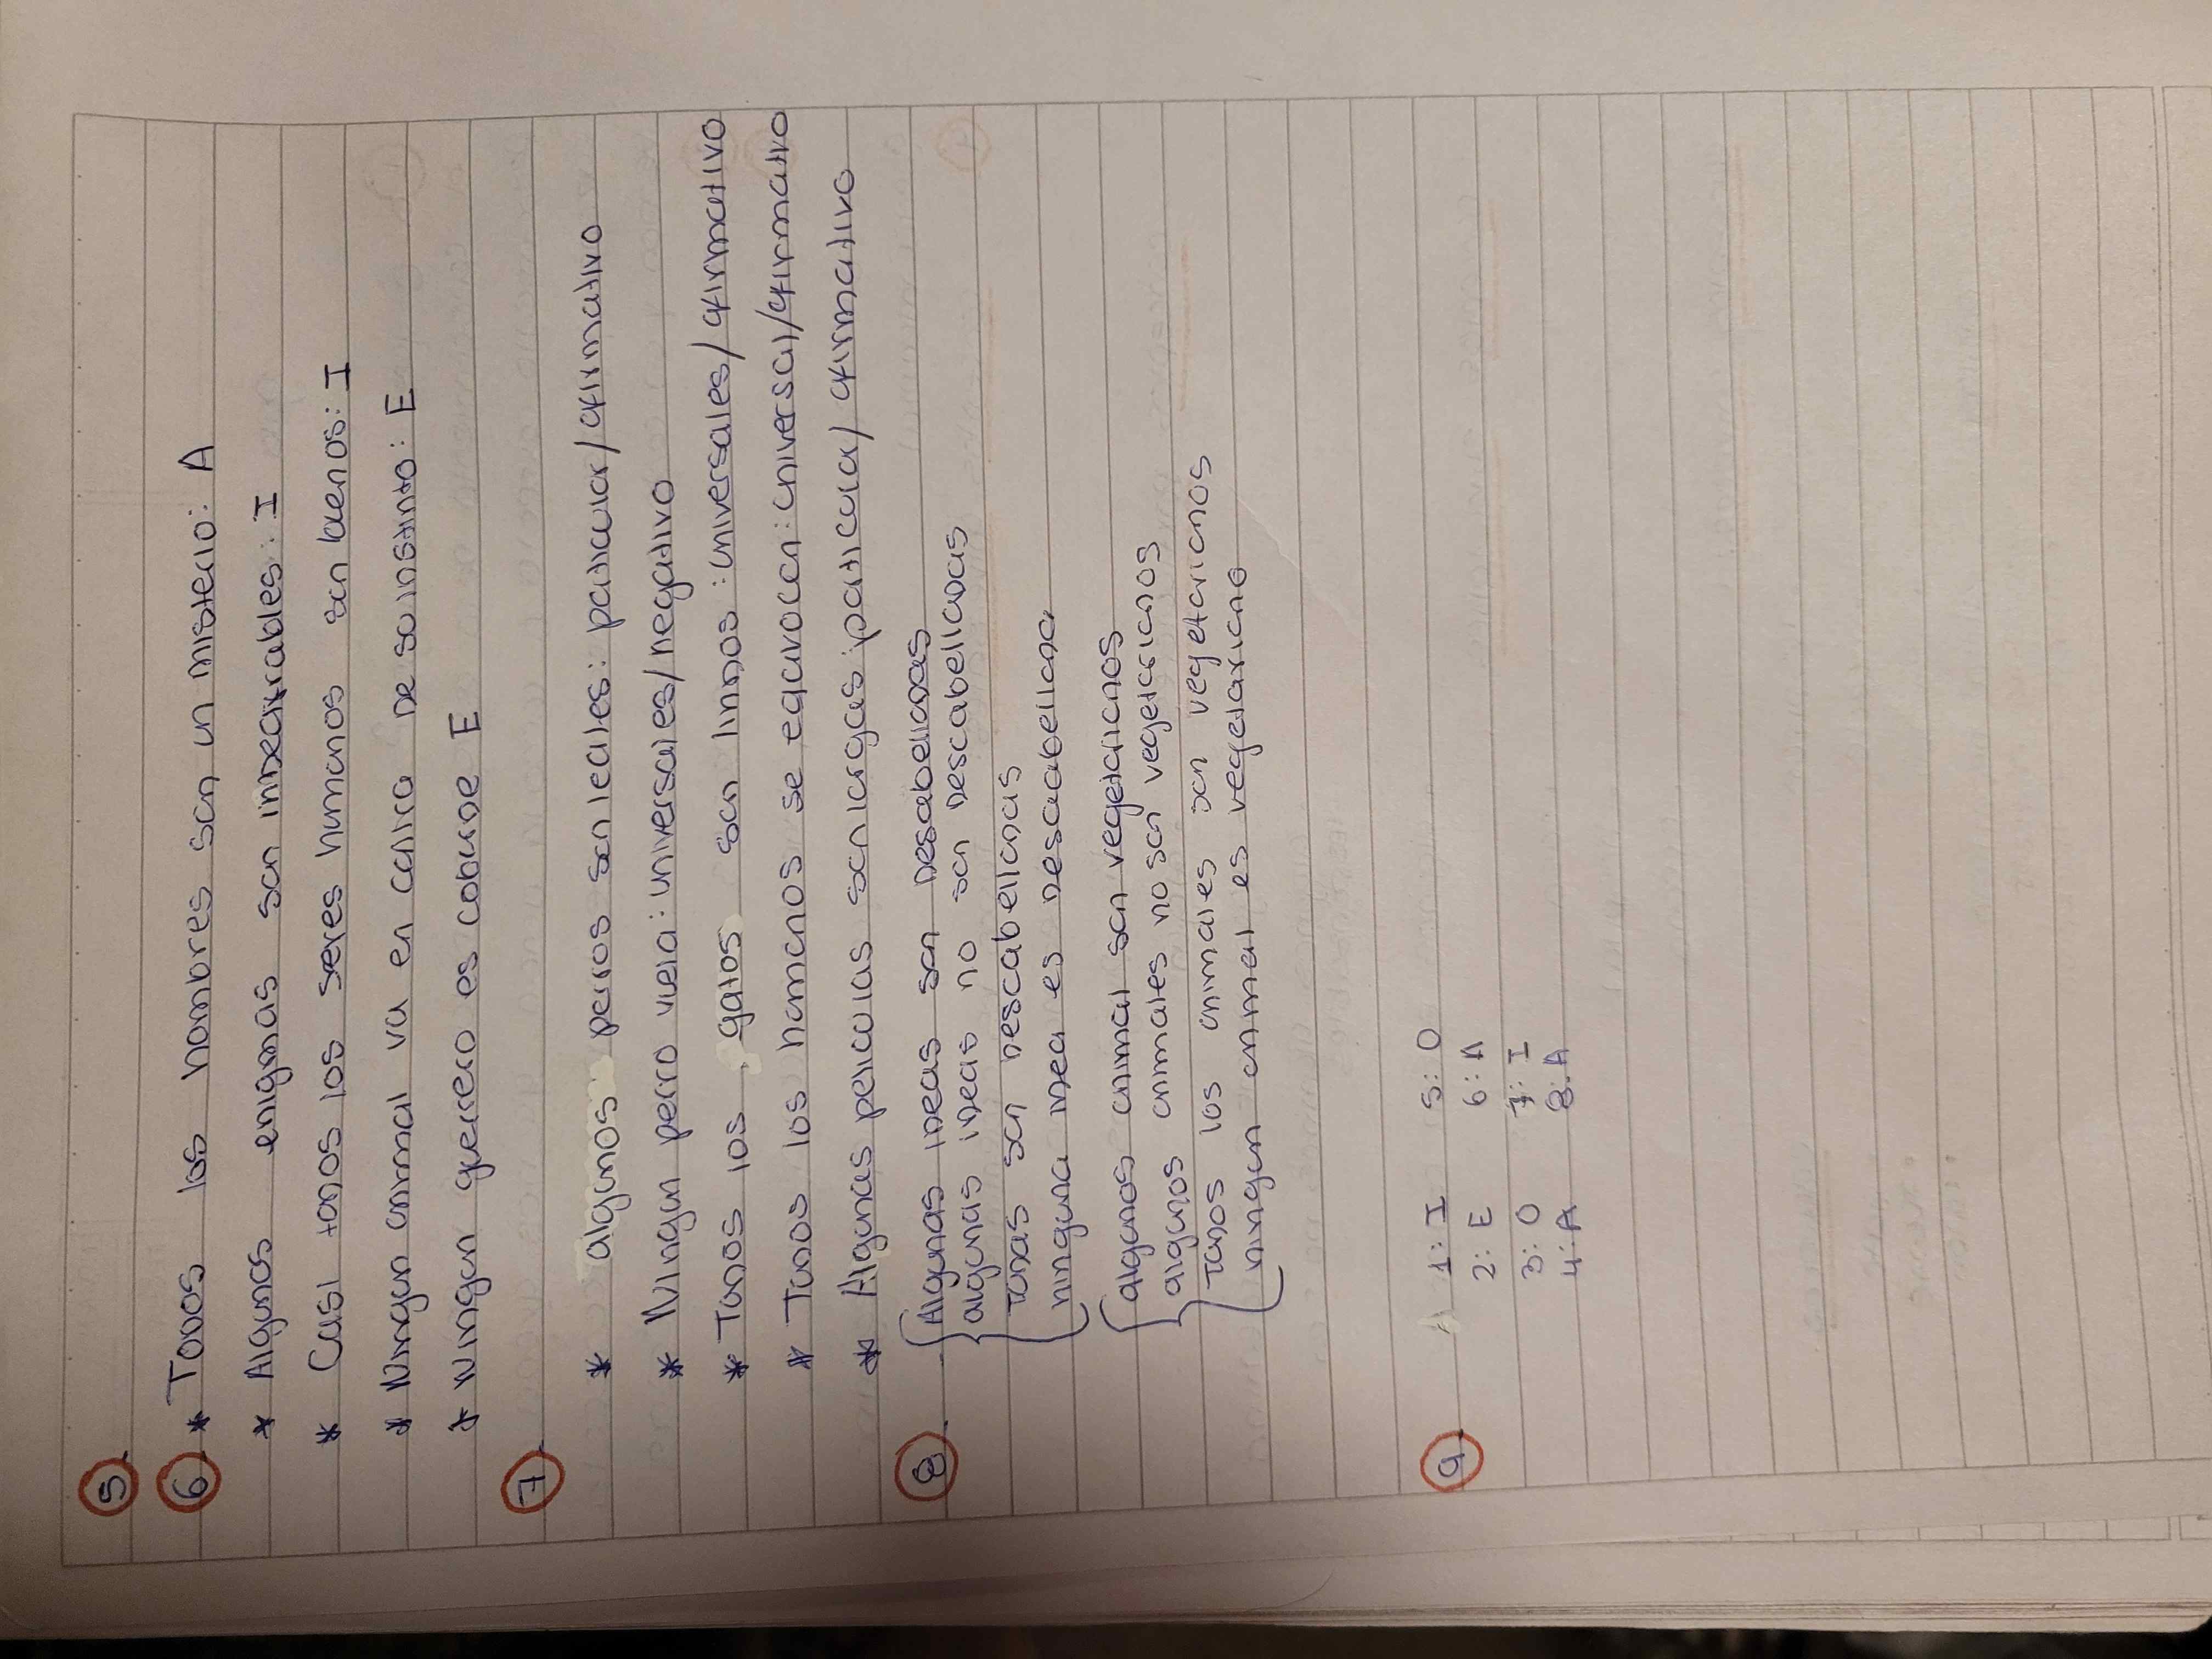 5.
6. * Todos los hombres son un misterio: A
* Algunos enigmas son indecifrables: I
* Casi todos los seres humanos son buenos: I
* Ningun animal va en contra de so instinto: E
* Ningun guerrero es cobarde E
7.
* algunos perros son leales: particular/afirmativo
* Ningun perro vuela: universales/negativo
* Todos los gatos son lindos: universales/afirmativo
* Todos los humanos se equivocan: universal/afirmativo
* Algunas peliculas son largas: particular/afirmativo
8. Algunas ideas son desabelladas
algunas ideas no son descabelladas
Todas son descabelladas
ninguna idea es descabellada
algunos animal son vegetarianos
algunos animales no son vegetarianos
Todos los animales son vegetarianos
ningun animal es vegetariano
9. 1: I 5: O
2: E 6: A
3: O 7: I
4: A 8: A